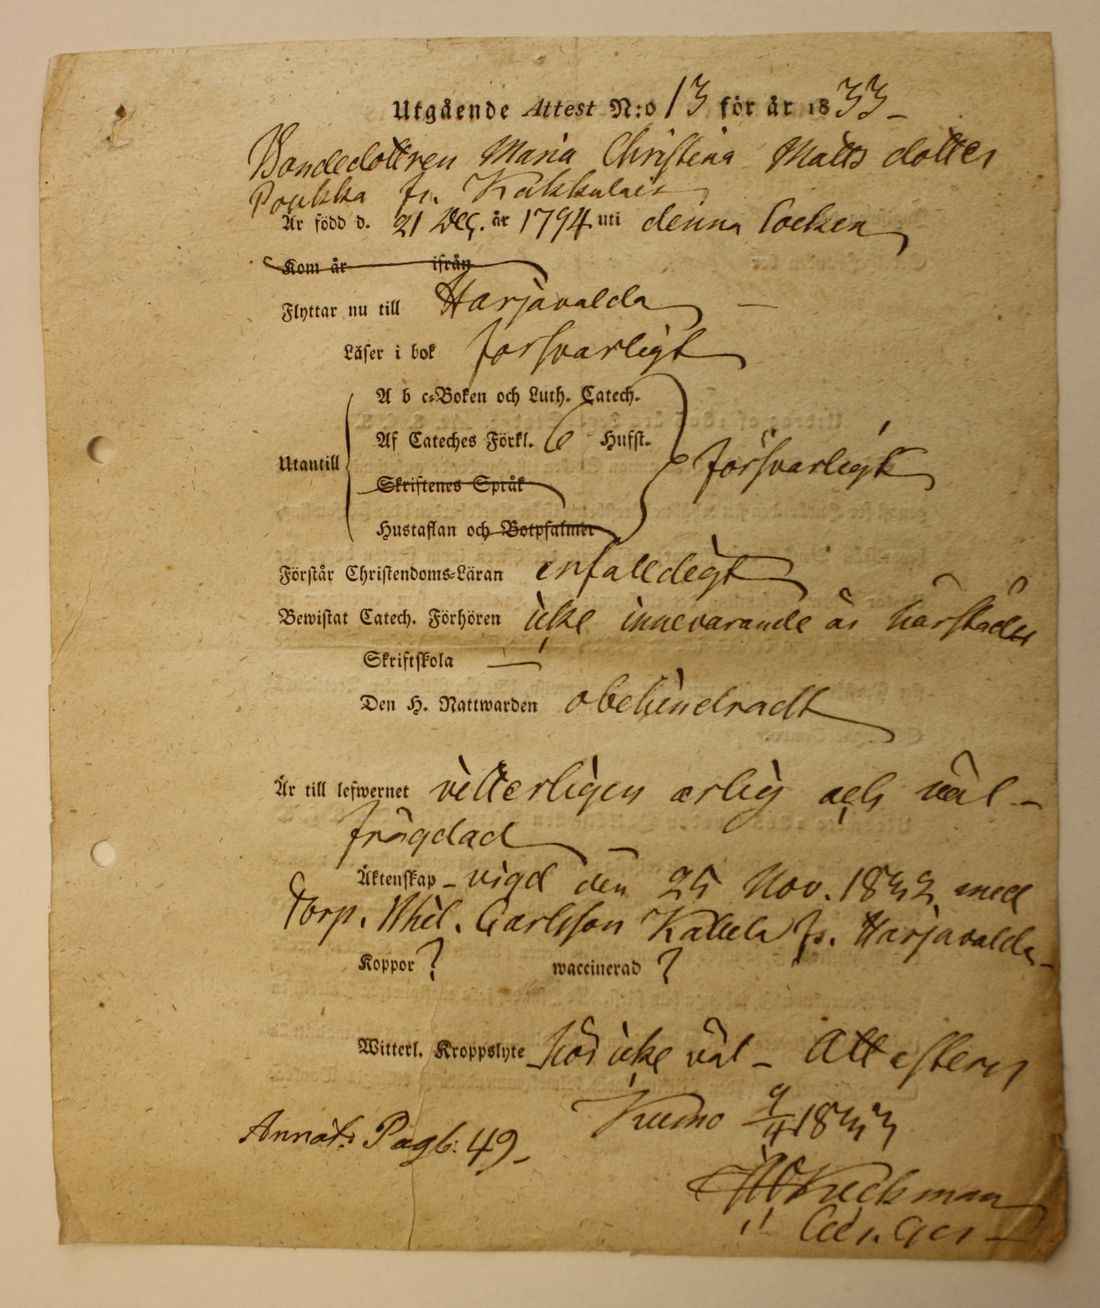 Utgående Attest N:o 13 för år 1833
Bondedottren Maria Christina Matts dotter
Poukka fr. Kakkulais
Är född d. 21 Dec. år 1794 uti denna Socken
Kom år ifrån
Flyttar nu till Harjavalda
Läser i bok försvarligt
A b c-Boken och Luth. Catech.
Af Cateches Förkl. 6 Hufst.
Utantill försvarligt
Skriftenes Språk
Hustaflan och Botpsalmer
Förstår Christendoms-Läran enfalldigt
Bewistat Catech. Förhören icke innevarande år härstädes
Skriftskola —
Den H. Nattwarden obehindradt
Är till lefwernet vitterligen ärlig och väl-
frägdad
Äktenskap - vigd den 25 Nov. 1832 med
Torp. Mhel. Carlsson Kallela fr. Harjavalda
Koppor ? waccinerad ?
Witterl. Kroppslyte hör icke väl - Attesterer
Kumo 9/4 1833
Annot. Pag: 49
Keckman